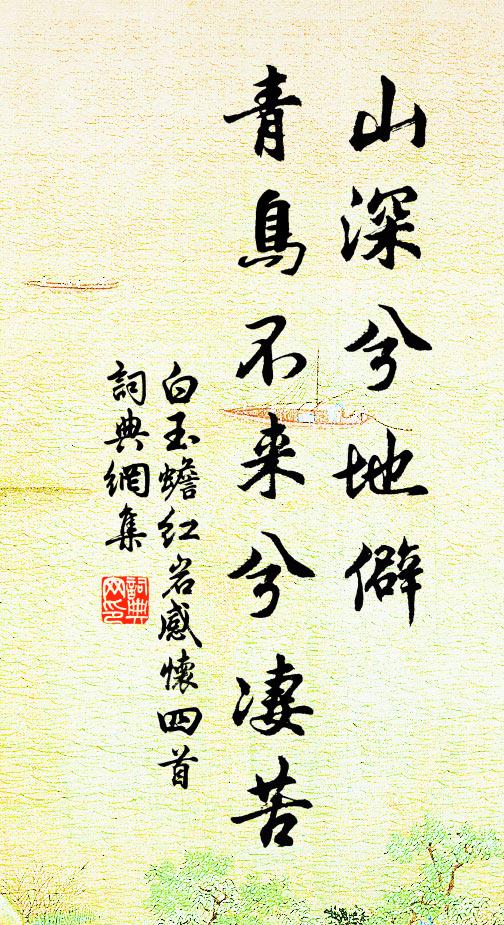 山深兮地僻
青鳥不来兮凄苦
白玉蟾红岩感懷四首
詞典網集